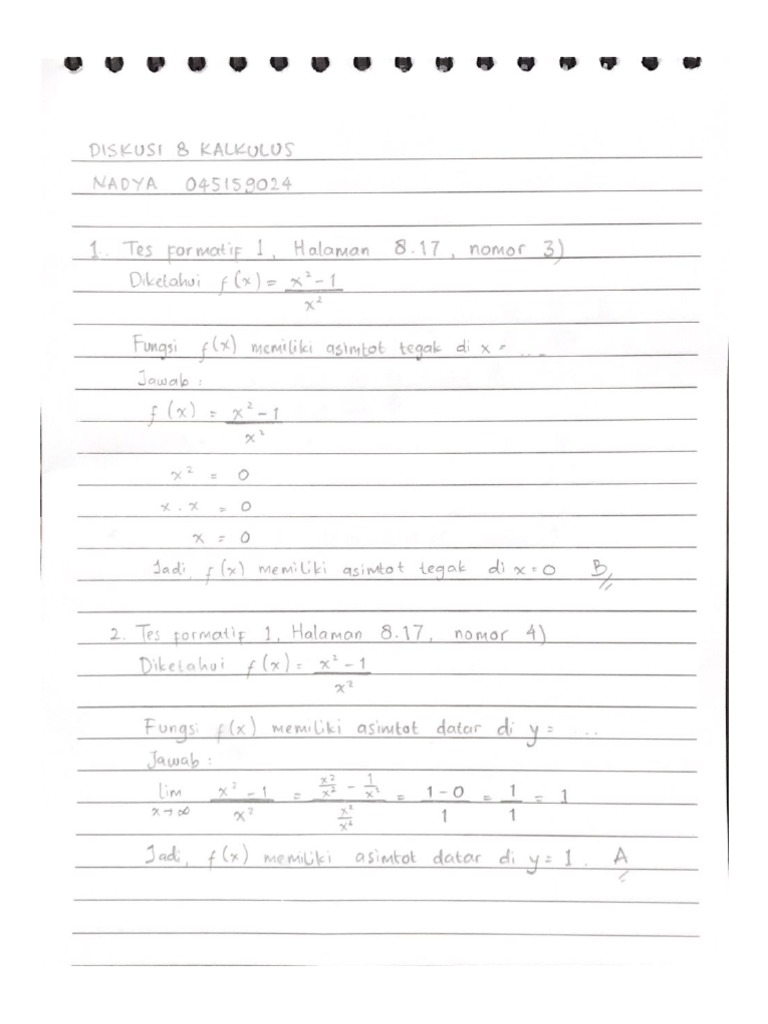 DISKUSI 8 KALKULUS
NADYA 045159024
1. Tes formatif 1, Halaman 8.17, nomor 3)
Diketahui f(x) = x² - 1 / x²
Fungsi f(x) memiliki asimtot tegak di x = ...
Jawab :
f(x) = x² - 1 / x²
x² = 0
x . x = 0
x = 0
Jadi, f(x) memiliki asimtot tegak di x = 0 B
2. Tes formatif 1, Halaman 8.17, nomor 4)
Diketahui f(x) = x² - 1 / x²
Fungsi f(x) memiliki asimtot datar di y = ...
Jawab :
lim x→∞ x² - 1 / x² = x²/x² - 1/x² / x²/x² = 1 - 0 / 1 = 1 / 1 = 1
Jadi, f(x) memiliki asimtot datar di y = 1. A